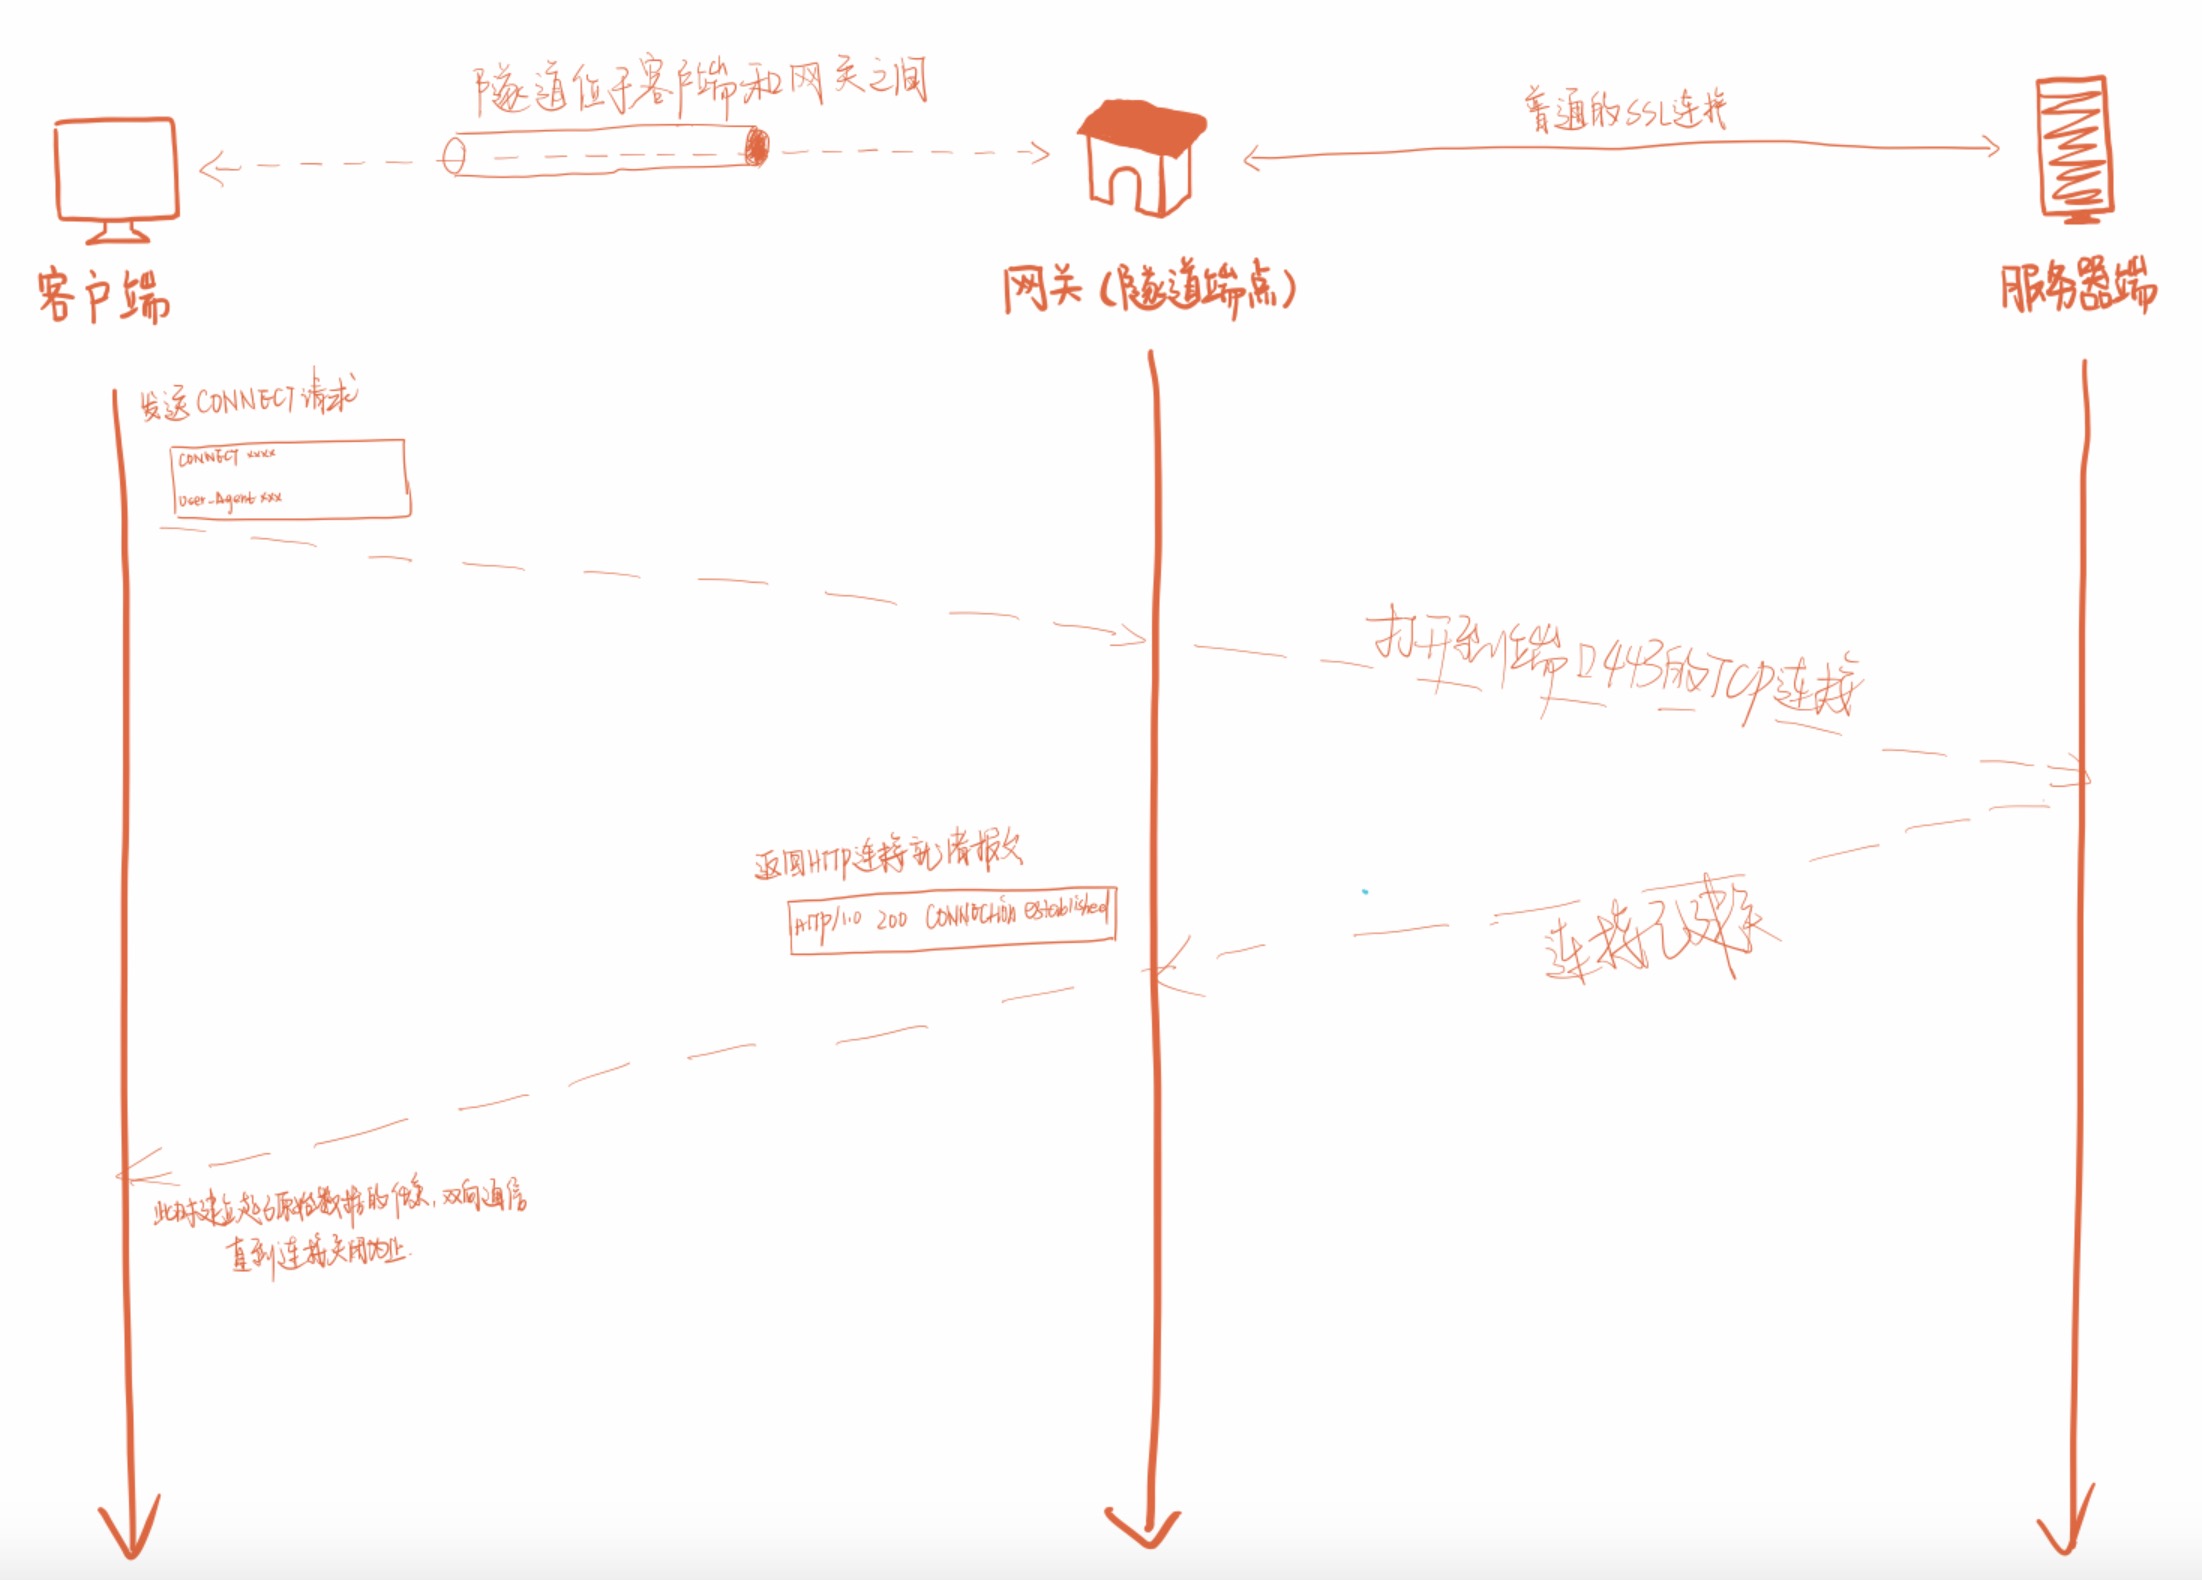 隧道位于客户端和网关之间
普通的SSL连接
客户端
网关(隧道端点)
服务器端
发送CONNECT请求
CONNECT xxxx
User-Agent xxx
打开到主端口443的TCP连接
返回HTTP连接就绪报文
HTTP/1.0 200 CONNECTION established
连接已建立
此时建立起了原始数据的传输,双向通信
直到连接关闭为止.